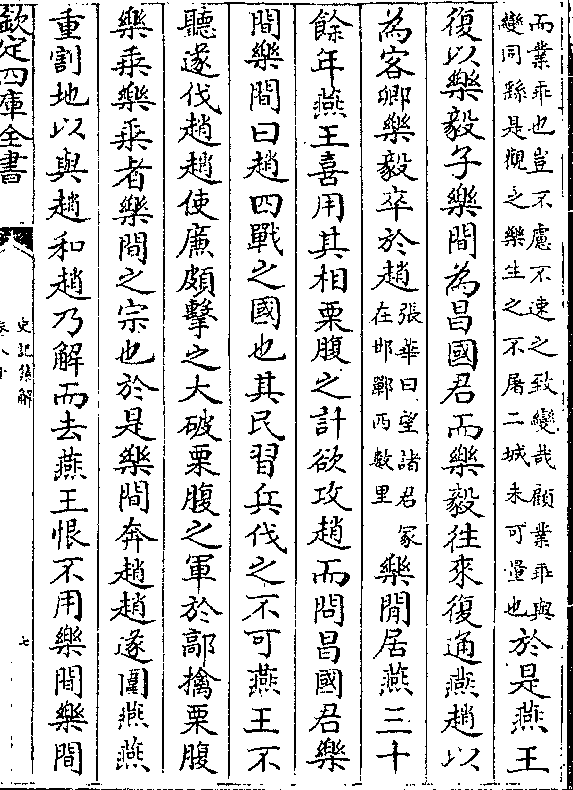 而業乖也豈不慮不速之致變哉顧業乖與
變同繇是觀之樂生之不屠二城未可量也
於是燕王
復以樂毅子樂間為昌國君而樂毅往來復通燕趙以
為客卿樂毅卒於趙
張華曰望諸君冢
在邯鄲西數里
樂閒居燕三十
餘年燕王喜用其相栗腹之計欲攻趙而問昌國君樂
間樂間曰趙四戰之國也其民習兵伐之不可燕王不
聽遂伐趙趙使廉頗擊之大破栗腹之軍於鄗擒栗腹
樂乘樂乘者樂間之宗也於是樂間奔趙趙遂圍燕燕
重割地以與趙和趙乃解而去燕王恨不用樂間樂間
欽定四庫全書
史記集解
七